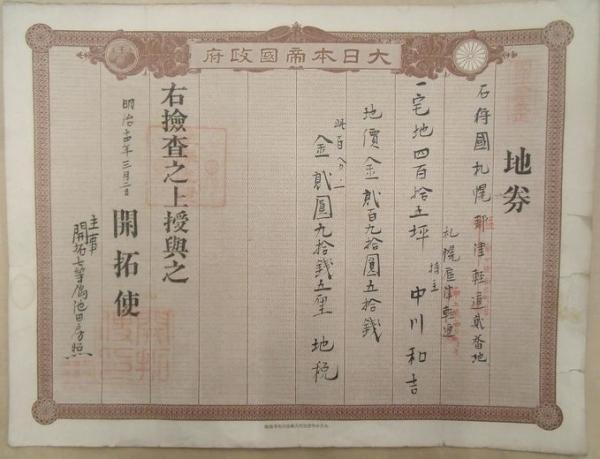 大日本帝國政府
地券
石狩國札幌郡津輕通貳番地
札幌區津輕通
持主 中川和吉
一宅地四百拾五坪
地價金貳百九拾圓五拾錢
此百分ノ一
金貳圓九拾錢五厘 地税
右檢査之上授與之
明治十四年三月二日
開拓使
主事
開拓七等属池田房照